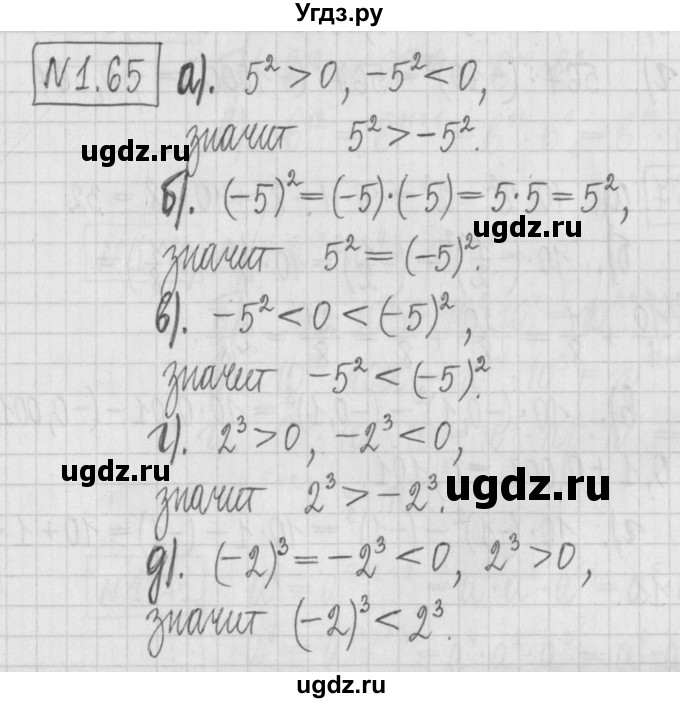 Угдз.ру
№1.65 а). 5² > 0, -5² < 0,
значит 5² > -5².
ugdz.ru
б). (-5)² = (-5)·(-5) = 5·5 = 5²,
ugdz.ru
значит 5² = (-5)².
в). -5² < 0 < (-5)²,
значит -5² < (-5)².
г). 2³ > 0, -2³ < 0,
ugdz.ru
значит 2³ > -2³.
ugdz.ru
д). (-2)³ = -2³ < 0, 2³ > 0,
значит (-2)³ < 2³.
ugdz.ru